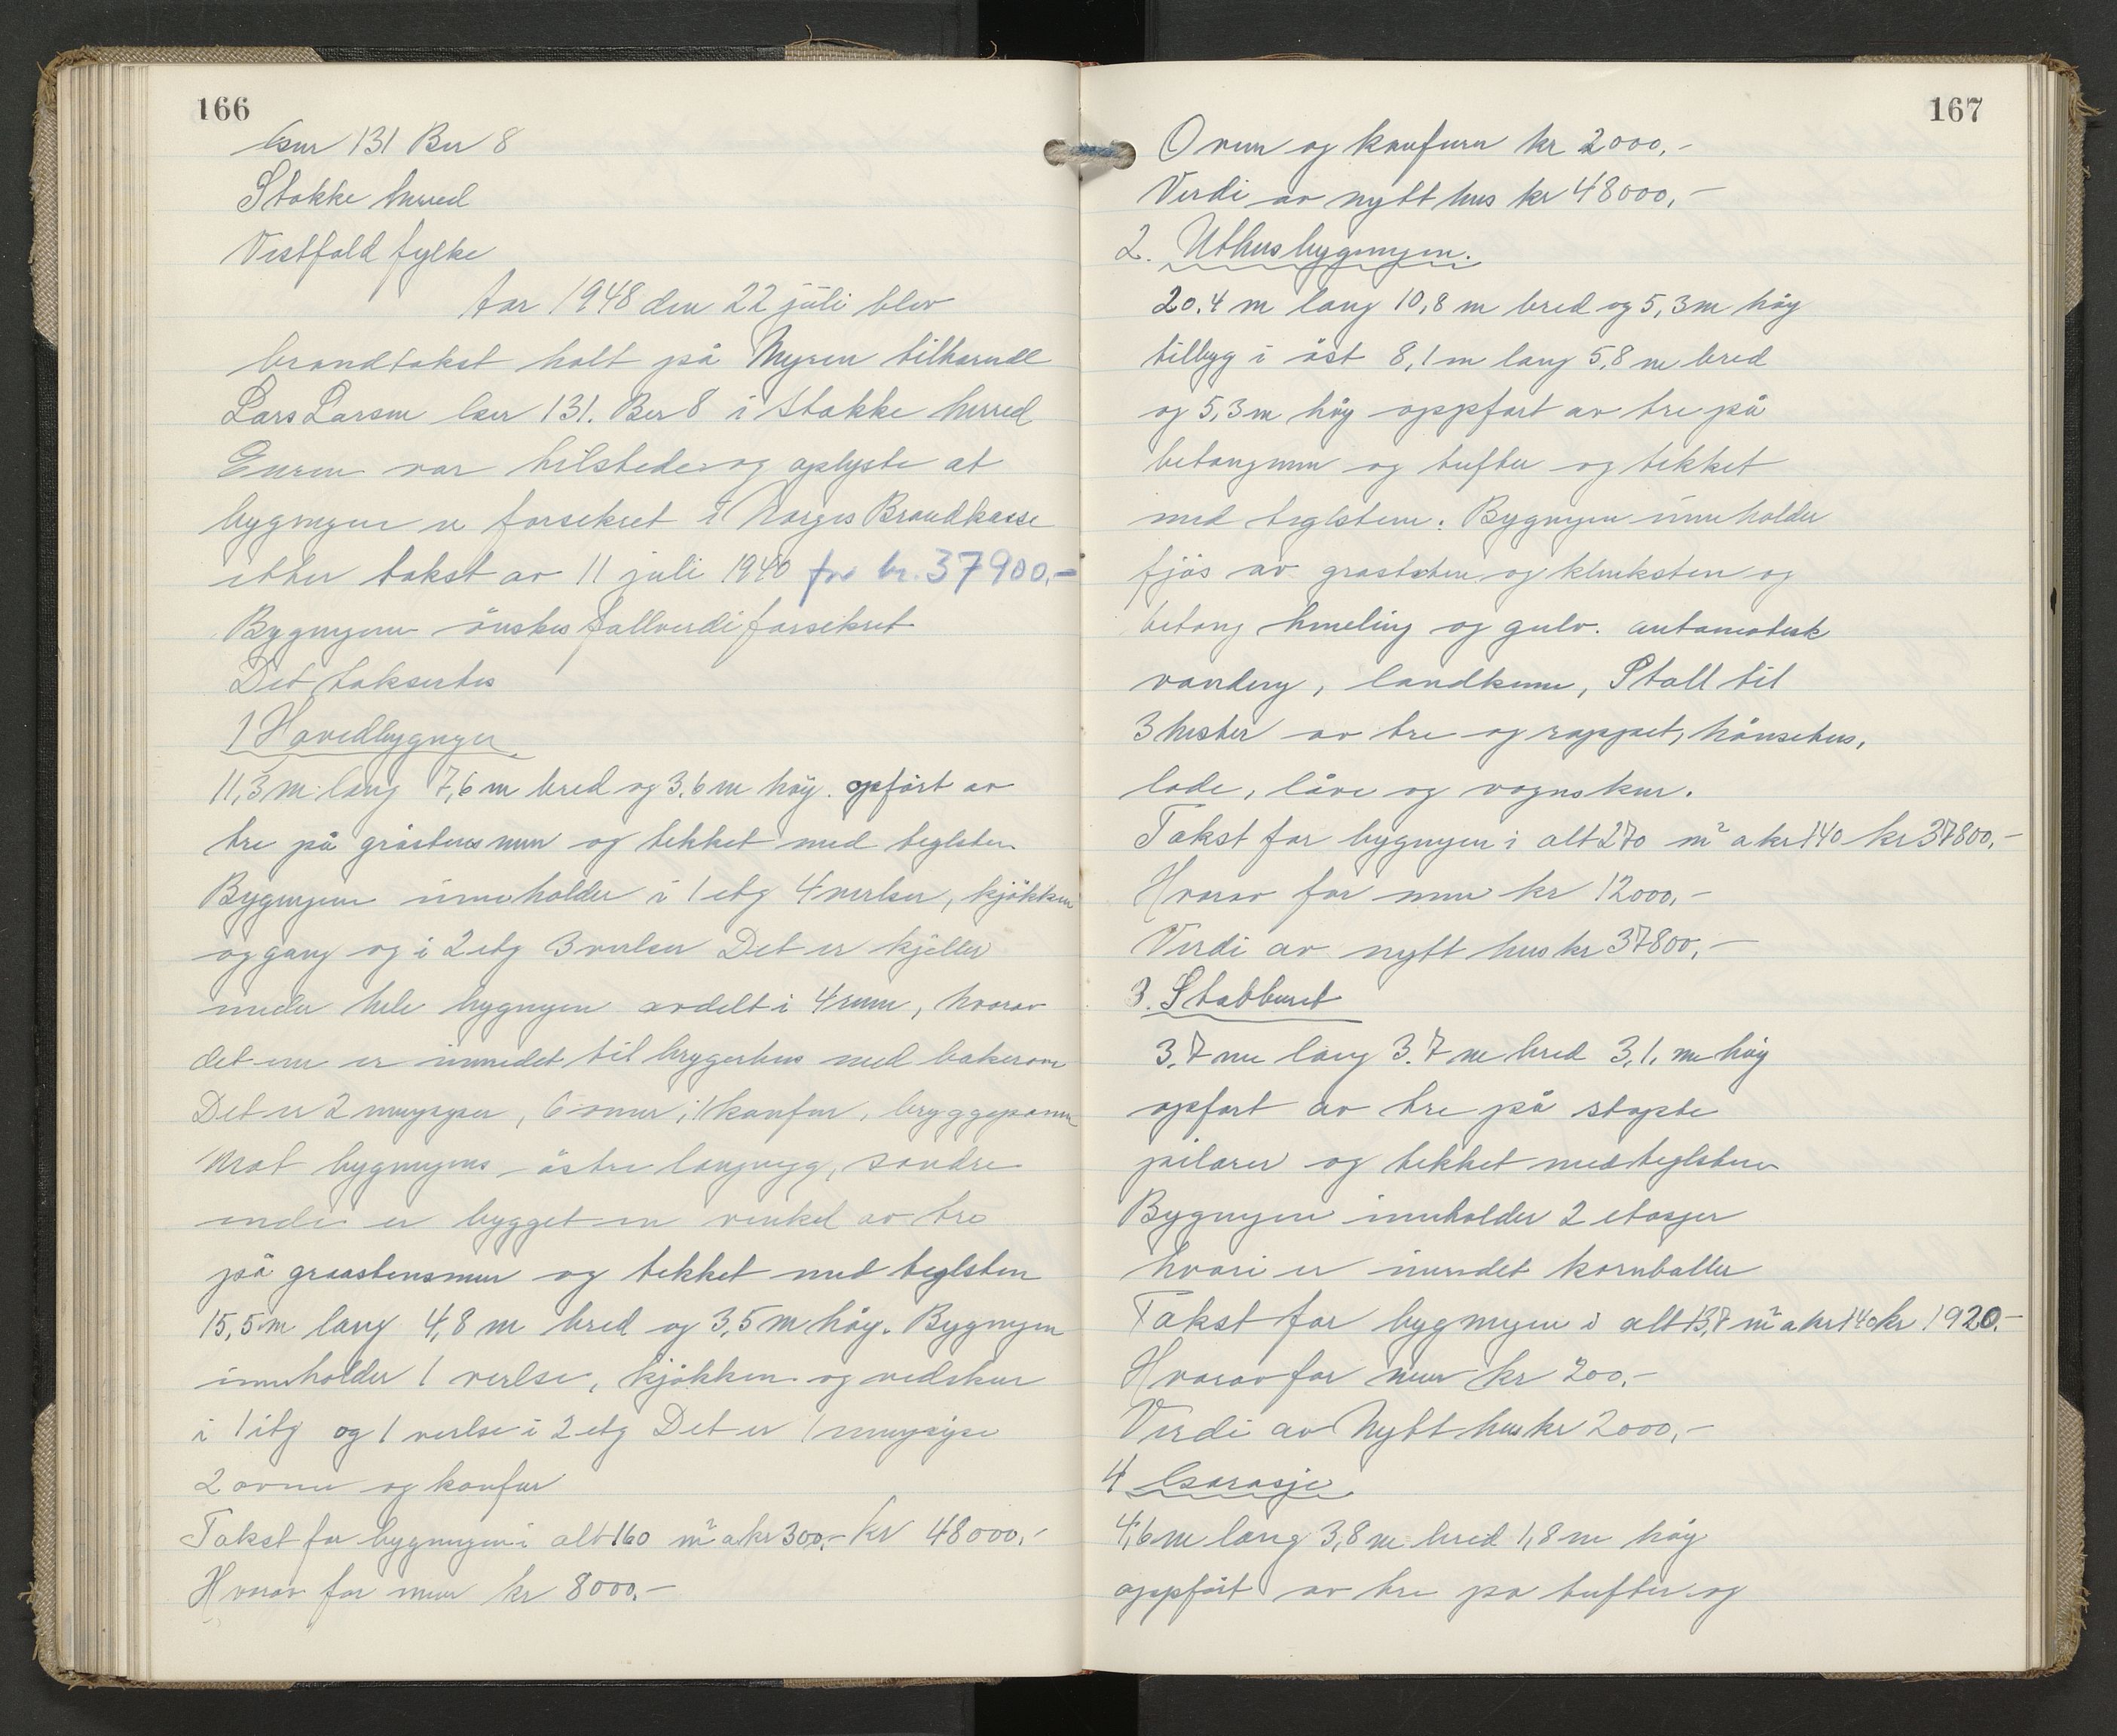 166
Gnr 131 Bnr 8
Stokke herred
Vestfold fylke
Aar 1948 den 22 juli blev
brandtakst holt på Myren tilhørende
Lars Larsen Gnr 131. Bnr 8 i Stokke herred
Eieren var tilstede og oplyste at
bygningen er forsekret i Norges Brandkasse
etter takst av 11 juli 1940 for kr. 37900,-
Bygningene önskes fullverdiforsikret
Det taksertes
1 Hovedbygningen
11,3 m lang 7,6 m bred og 3,6 m höy. opfört av
tre på gråstensmur og tekket med teglsten
Bygningen inneholder i 1 etg 4 verlser, kjökken
og gang og i 2 etg 3 verlser Det er kjeller
under hele bygningen avdelt i 4 rum, hvorav
det ene er innredet til bryggerhus med bakerovn
Det er 2 murpiper, 6 ovner, 1 komfur, bryggepanne
Mot bygningens östre langvegg, söndre
ende er bygget en vinkel av tre
på graastensmur og tekket med teglsten
15,5 m lang 4,8 m bred og 3,5 m höy. Bygningen
inneholder 1 verlse, kjökken og vedskur
i 1 etg og 1 verlse i 2 etg Det er 1 murpipe
2 ovner og komfur
Takst for bygningen i alt 160 m² a kr 300,- kr 48000,-
Hvorav for mur kr 8000,-
167
Ovner og komfurer kr 2000,-
Verdi av nytt hus kr 48000,-
2. Uthusbygningen.
20,4 m lang 10,8 m bred og 5,3 m höy
tilbyg i öst 8,1 m lang 5,8 m bred
og 5,3 m höy oppfört av tre på
betongmur og tufter og tekket
med teglsten. Bygningen inneholder
fjös av graasten og klinksten og
betong himeling og gulv. automatisk
vanding, landkum, Stall til
3 hester av tre og rappet, hönsehus,
lade, låve og vognskur.
Takst for bygningen i alt 270 m² a kr 140 kr 37800,-
Hvorav for mur kr 12000,-
Verdi av nytt hus kr 37800,-
3. Stabburet
3,7 m lang 3.7 m bred 3,1, m höy
opfört av tre på stöpte
pilarer og tekket med teglsten
Bygningen inneholder 2 etasjer
hvori er innredet kornballer
Takst for bygningen i alt 13,7 m² a kr 140 kr 1920.-
Hvorav for mur kr 200,-
Verdi av Nytt hus kr 2000,-
4 Garasje
4,6 m lang 3,8 m bred 1,8 m höy
oppfört av tre på tufter og